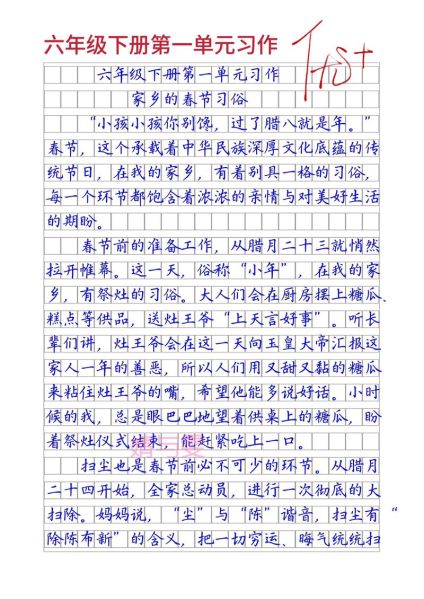 六年级下册第一单元习作
六年级下册第一单元习作
家乡的春节习俗
“小孩小孩你别馋，过了腊八就是年。”
春节，这个承载着中华民族深厚文化底蕴的传
统节日，在我的家乡，有着别具一格的习俗，
每一个环节都饱含着浓浓的亲情与对美好生活
的期盼。
春节前的准备工作，从腊月二十三就悄然
拉开帷幕。这一天，俗称“小年”，在我的家
乡，有祭灶的习俗。大人们会在厨房摆上糖瓜、
糕点等供品，送灶王爷“上天言好事”。听长
辈们讲，灶王爷会在这一天向玉皇大帝汇报这
家人一年的善恶，所以人们用又甜又黏的糖瓜
来粘住灶王爷的嘴，希望他能多说好话。小时
候的我，总是眼巴巴地望着供桌上的糖瓜，盼
着祭灶仪式结束，能赶紧吃上一口。
扫尘也是春节前必不可少的环节。从腊月
二十四开始，全家总动员，进行一次彻底的大
扫除。妈妈说，“尘”与“陈”谐音，扫尘有“
除陈布新”的含义，把一切穷运、晦气统统扫